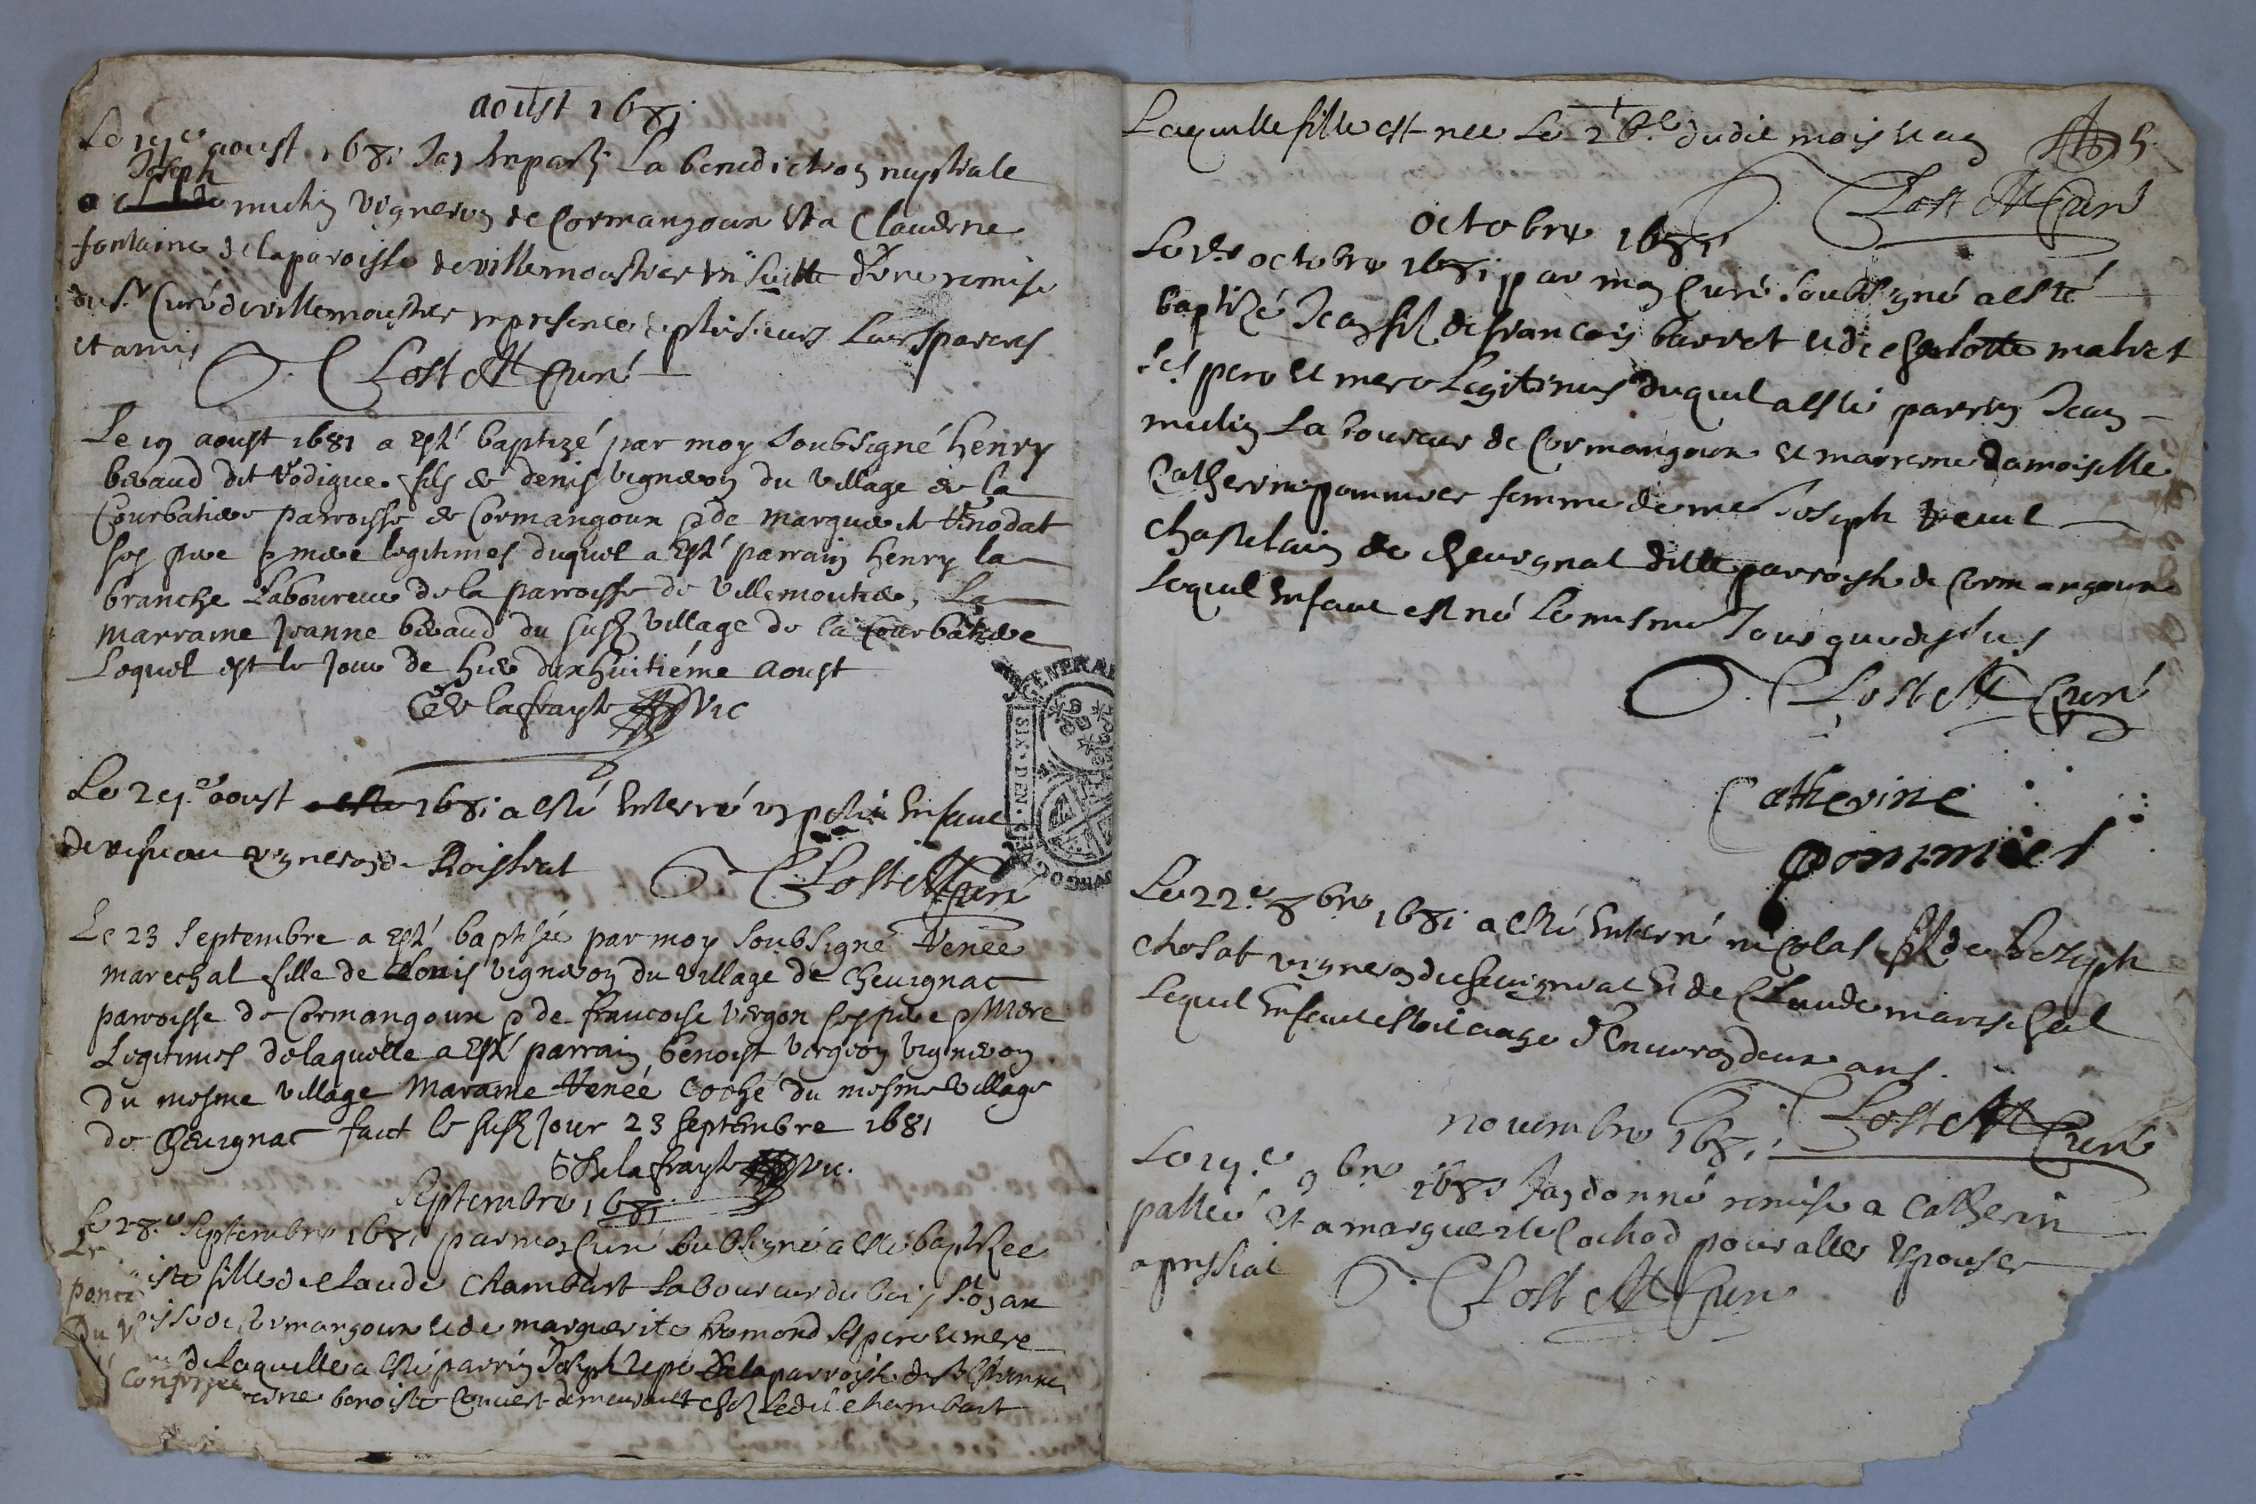 aoust 1681
Le 19e aoust 1681 Jay Imparty La benediction nuptiale
Joseph
a mulin vigneron de Cormangoux et a Claudine
fontaine de la paroisse de villemoustier en suitte d'une remise
du Sr Curé de villemoustier en presence de plusieurs Leurs parens
et amis
Lost Curé
Le 19 aoust 1681 a esté baptizé par moy soubsigné henry
beraud dit vodique fils de denis vigneron du village de la
Courbatiere parroisse de Cormangoux & de marguerite
ses pere & mere legitimes duquel a esté parrain henry la
branche Laboureur de la parroisse de villemoutier, La
marraine Jeanne beraud du susd village de la Courbatiere
Lequel est le jour de hier dixhuitiéme aoust
de lafrayte vic
Le 21e aoust 1681 a esté Enterré un petit Enfant
de vigneron de Roissiat
Lost Curé
Le 23 septembre a esté baptisée par moy soubsigné Renée
marechal fille de Louis vigneron du village de Cheuignac
parroisse de Cormangoux & de francoise vergon ses pere & Mere
Legitimes de laquelle a esté parrain benoist vergon vigneron
du mesme village Maraine Renée Coché du mesme village
de Cheuignac faict le susd jour 23 septembre 1681
de lafrayte vic.
Septembre 1681
Le 28e septembre 1681 par moy Curé soubsigné a esté baptizée
fille de Claude Chambart Laboureur du
de Cormangoux et de marguerite ses pere et mere
de Laquelle a esté parrin Joseph de la parroisse de
benoiste Convert demeurant chez Ledit Chambart
Laquelle fille est nee Le dudit mois et an
Lost Curé
octobre 1681
Le octobre 1681 par moy Curé soubsigné a esté
baptizé Jean fil de francois barret et de charlotte malvet
ses pere et mere Legitimes duquel a esté parrin Jean
mulin Laboureur de Cormangoux et marrene damoiselle
Catherine pommier femme de me Joseph
chastelain de cheuignat ditte parroisse de Cormangoux
Lequel Enfant est né Le mesme Jour que dessus
Lost Curé
Catherine
pommier
Le 22e 8bre 1681 a esté Enterré nicolas fil de Joseph
chosat vigneron de cheuignat et de Claude mareschal
Lequel Enfant estoit aagé d'Enuiron deux ans.
Lost Curé
nouembre 1681
Le 19e 9bre 1681 Jay donné remise a Catherin
pallié et a marguerite Cochod pour aller Espouser
a pressiat
Lost Curé